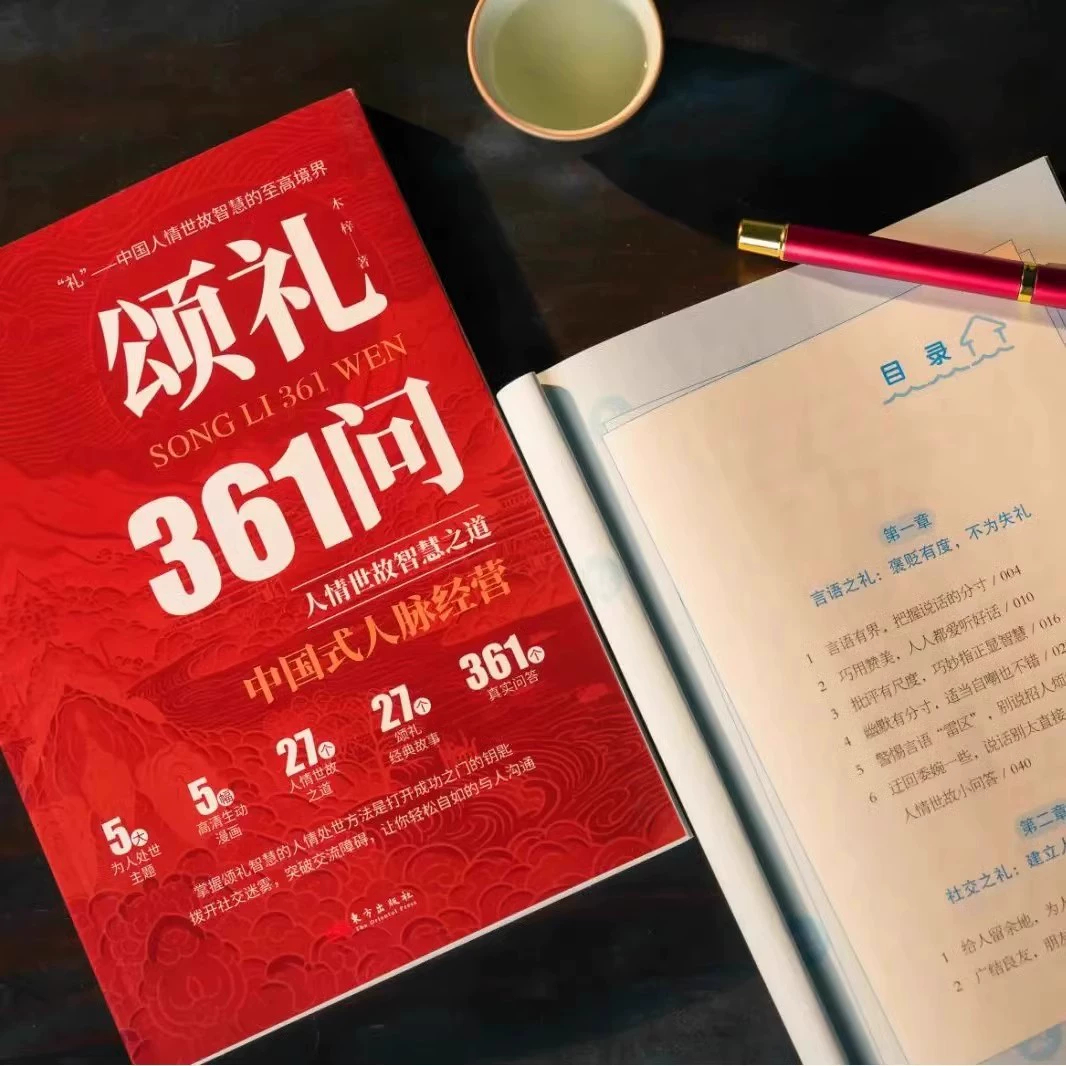 “礼”——中国人情世故智慧的至高境界
木梓——著
颂礼
SONG LI 361 WEN
361问
人情世故智慧之道
中国式人脉经营
5大
为人处世
主题
5幅
高清生动
漫画
27个
人情世故
之道
27个
颂礼
经典故事
361个
真实问答
掌握颂礼智慧的人情处世方法是打开成功之门的钥匙
拨开社交迷雾，突破交流障碍，让你轻松自如的与人沟通
东方出版社
The Oriental Press
目录
第一章
言语之礼：褒贬有度，不为失礼
1 言语有界，把握说话的分寸 / 004
2 巧用赞美，人人都爱听好话 / 010
3 批评有尺度，巧妙指正显智慧 / 016
4 幽默有分寸，适当自嘲也不错 / 02
5 警惕言语“雷区”，别说招人烦
6 迂回委婉一些，说话别太直接
人情世故小问答 / 040
第二章
社交之礼：建立人
1 给人留余地，为人
2 广结良友，朋友